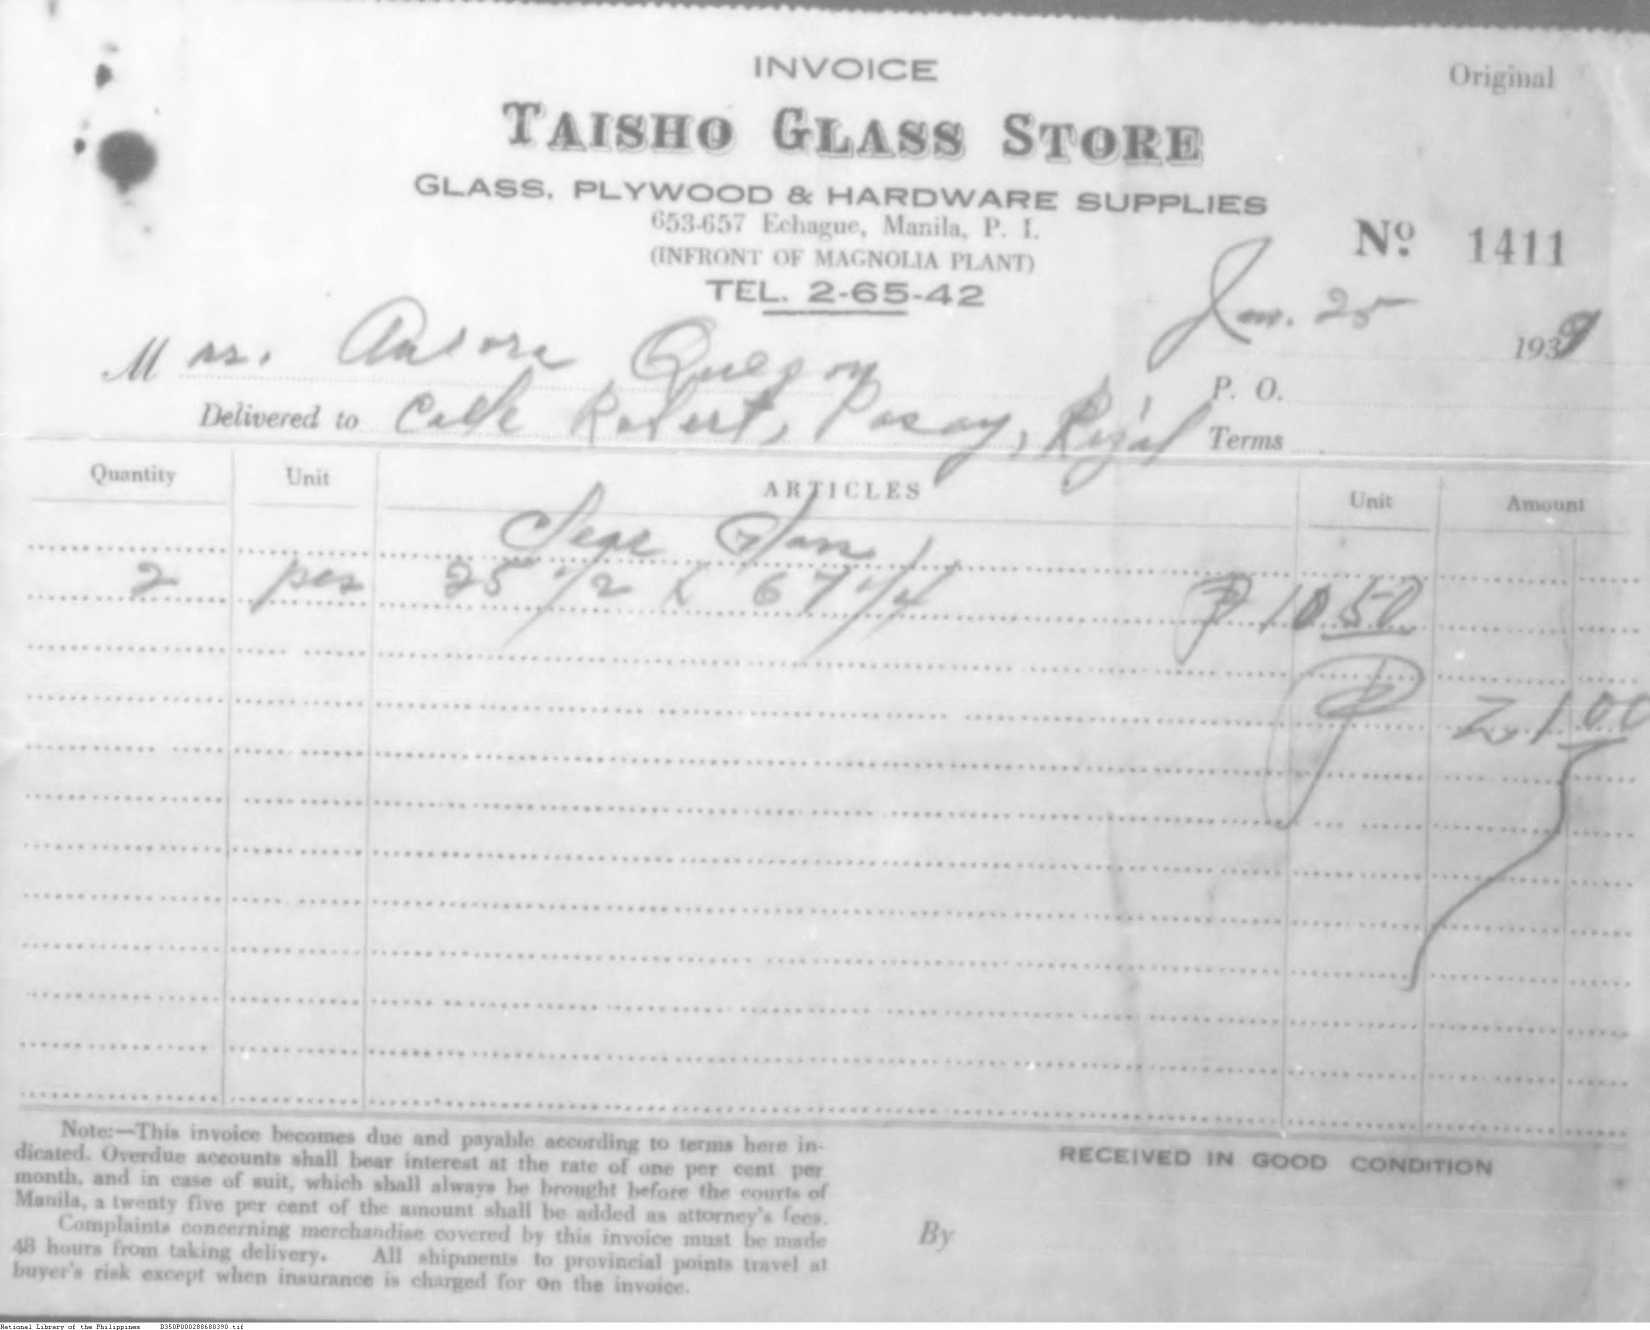 INVOICE
Original
TAISHO GLASS STORE
GLASS, PLYWOOD & HARDWARE SUPPLIES
653-657 Echague, Manila, P. I.
(INFRONT OF MAGNOLIA PLANT)
TEL. 2-65-42
No. 1411
Jan. 25 1939
Mrs. Aurora Quezon
P. O.
Delivered to Calle Robert, Pasay, Rizal
Terms
Quantity Unit ARTICLES Unit Amount
Clear Glass
2 pcs 25 1/2 x 67 1/4 ₱ 10.50
₱ 21.00
Note:—This invoice becomes due and payable according to terms here in-
dicated. Overdue accounts shall bear interest at the rate of one per cent per
month, and in case of suit, which shall always be brought before the courts of
Manila, a twenty five per cent of the amount shall be added as attorney's fees.
Complaints concerning merchandise covered by this invoice must be made
48 hours from taking delivery. All shipments to provincial points travel at
buyer's risk except when insurance is charged for on the invoice.
RECEIVED IN GOOD CONDITION
By
National Library of the Philippines B350P000288688390.tif